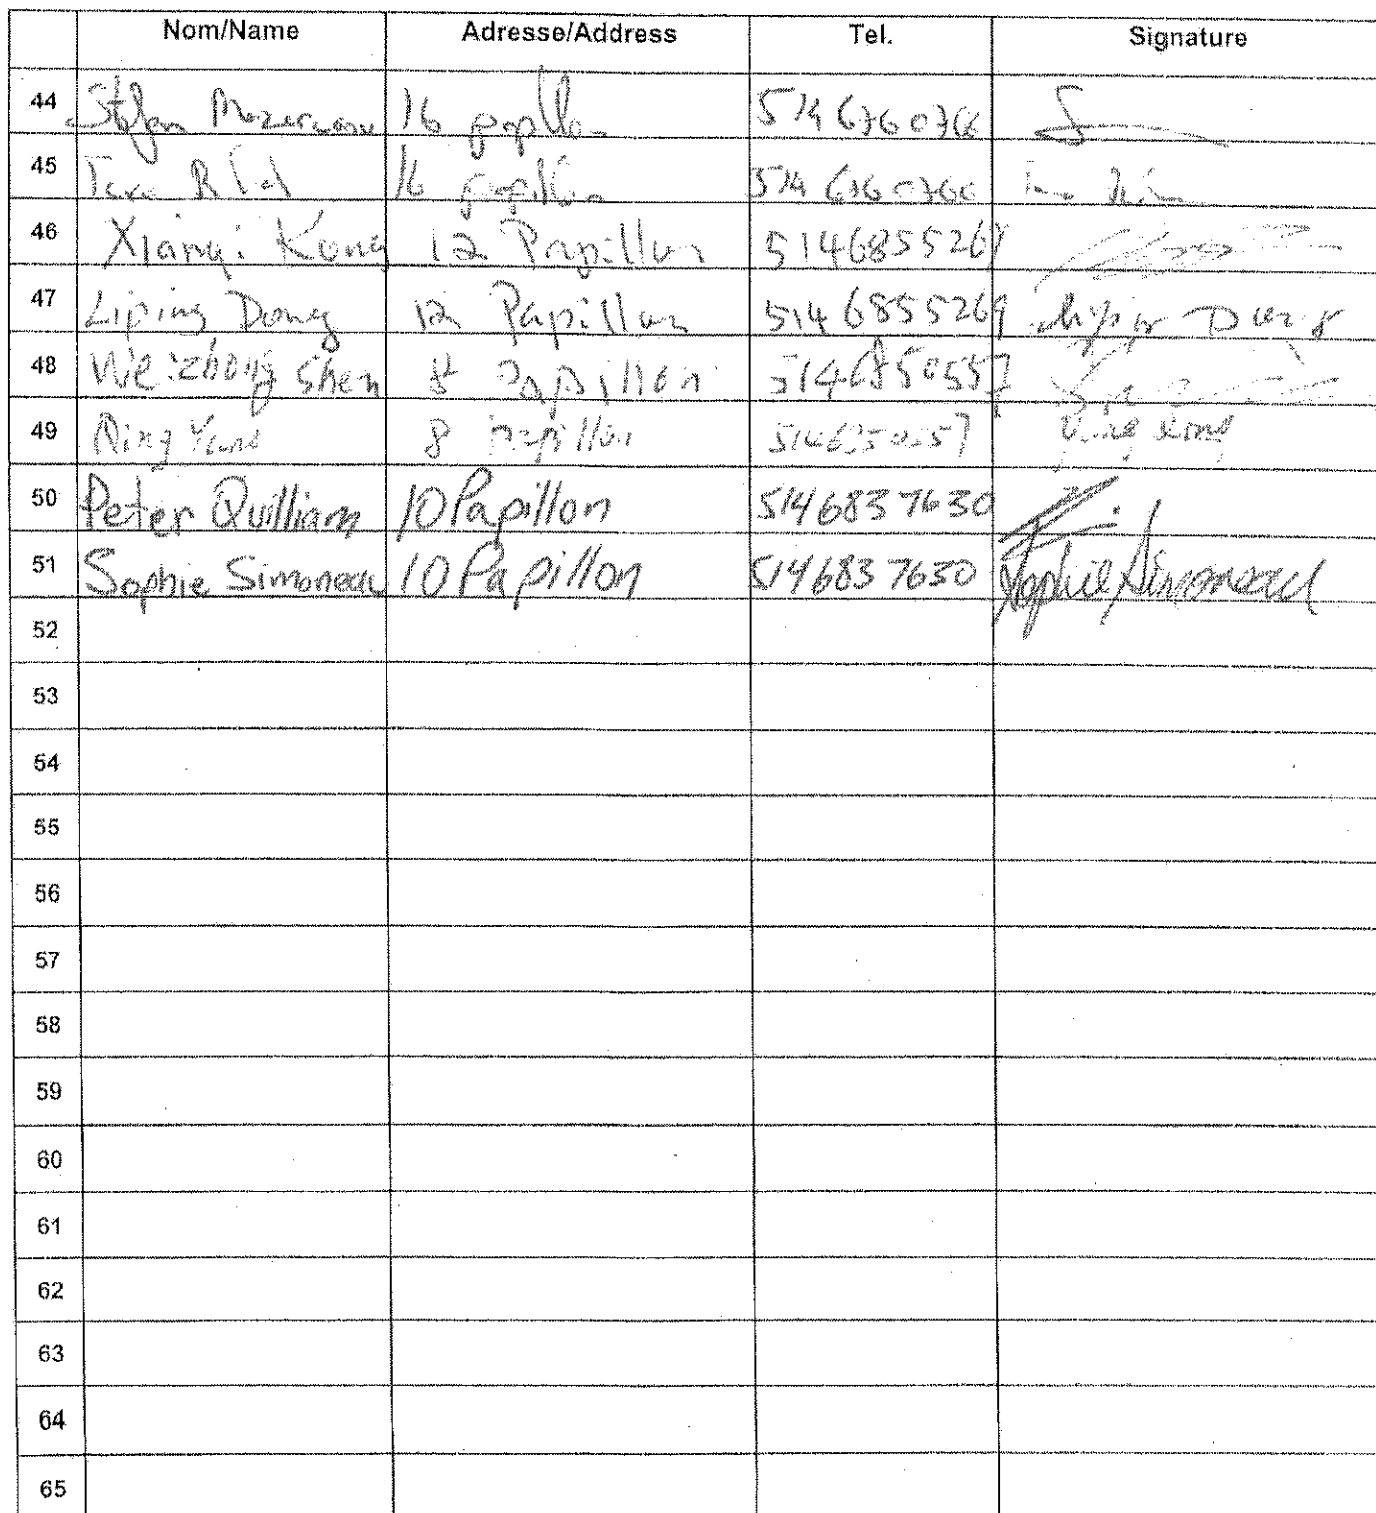 Nom/Name Adresse/Address Tel. Signature
44 Stefan 16 papillon 514
45 Tara 16 papillon 514
46 Xiangi Kong 12 Papillon 5146855269
47 Liping Dong 12 Papillon 5146855269 Liping Dong
48 Weizhong Shen 8 Papillon 5146850557
49 Qing Yang 8 papillon 5146850557
50 Peter Quilliam 10 Papillon 5146837630
51 Sophie Simoneau 10 Papillon 5146837630 Sophie Simoneau
52
53
54
55
56
57
58
59
60
61
62
63
64
65